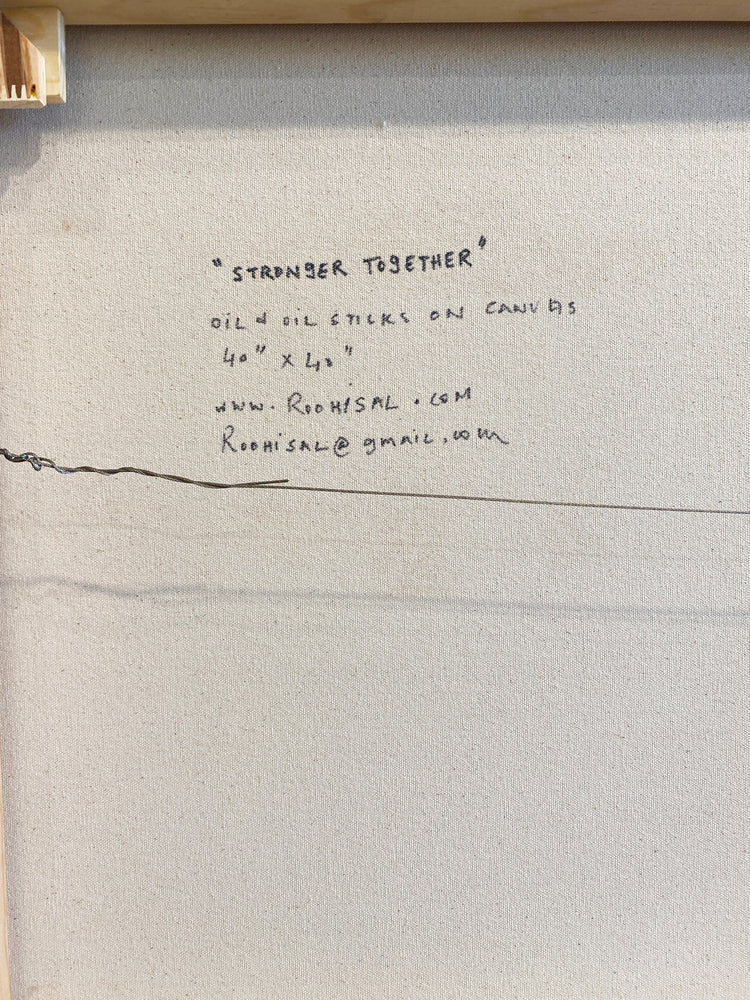 "STRONGER TOGETHER"
OIL & OIL STICKS ON CANVAS
40" X 40"
WWW.ROOHISAL.COM
ROOHISAL@gmail.com